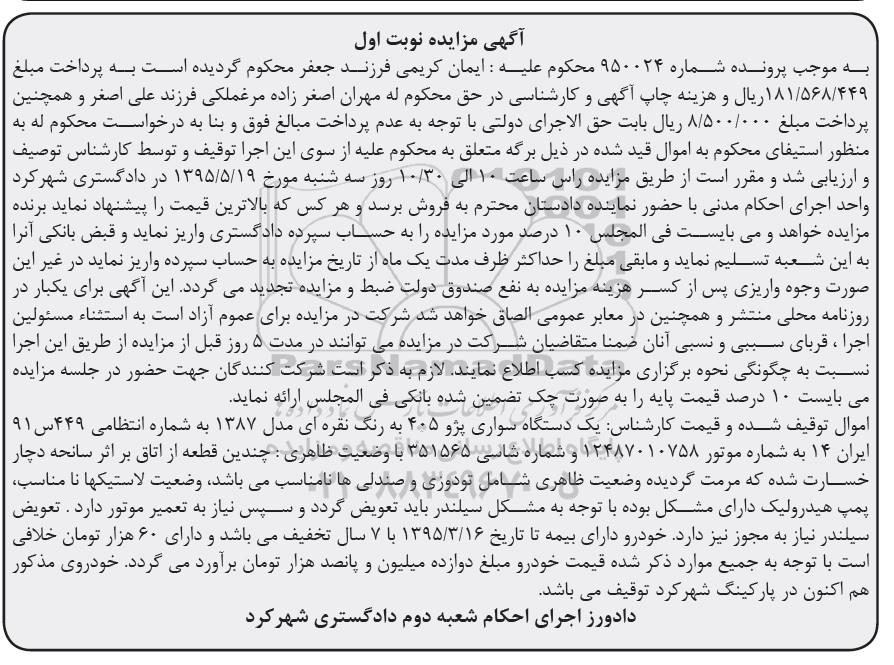 آگهی مزایده نوبت اول
به موجب پرونده شماره ۹۵۰۰۲۴ محکوم علیه : ایمان کریمی فرزند جعفر محکوم گردیده است به پرداخت مبلغ
۱۸۱/۵۶۸/۴۴۹ریال و هزینه چاپ آگهی و کارشناسی در حق محکوم له مهران اصغر زاده مرغملکی فرزند علی اصغر و همچنین
پرداخت مبلغ ۸/۵۰۰/۰۰۰ ریال بابت حق الاجرای دولتی با توجه به عدم پرداخت مبالغ فوق و بنا به درخواست محکوم له به
منظور استیفای محکوم به اموال قید شده در ذیل برگه متعلق به محکوم علیه از سوی این اجرا توقیف و توسط کارشناس توصیف
و ارزیابی شد و مقرر است از طریق مزایده راس ساعت ۱۰ الی ۱۰/۳۰ روز سه شنبه مورخ ۱۳۹۵/۵/۱۹ در دادگستری شهرکرد
واحد اجرای احکام مدنی با حضور نماینده دادستان محترم به فروش برسد و هر کس که بالاترین قیمت را پیشنهاد نماید برنده
مزایده خواهد و می بایست فی المجلس ۱۰ درصد مورد مزایده را به حساب سپرده دادگستری واریز نماید و قبض بانکی آنرا
به این شعبه تسلیم نماید و مابقی مبلغ را حداکثر ظرف مدت یک ماه از تاریخ مزایده به حساب سپرده واریز نماید در غیر این
صورت وجوه واریزی پس از کسر هزینه مزایده به نفع صندوق دولت ضبط و مزایده تجدید می گردد. این آگهی برای یکبار در
روزنامه محلی منتشر و همچنین در معابر عمومی الصاق خواهد شد شرکت در مزایده برای عموم آزاد است به استثناء مسئولین
اجرا ، قربای سببی و نسبی آنان ضمنا متقاضیان شرکت در مزایده می توانند در مدت ۵ روز قبل از مزایده از طریق این اجرا
نسبت به چگونگی نحوه برگزاری مزایده کسب اطلاع نمایند. لازم به ذکر است شرکت کنندگان جهت حضور در جلسه مزایده
می بایست ۱۰ درصد قیمت پایه را به صورت چک تضمین شده بانکی فی المجلس ارائه نماید.
اموال توقیف شده و قیمت کارشناس: یک دستگاه سواری پژو ۴۰۵ به رنگ نقره ای مدل ۱۳۸۷ به شماره انتظامی ۴۴۹س۹۱
ایران ۱۴ به شماره موتور ۱۲۴۸۷۰۱۰۷۵۸ و شماره شاسی ۳۵۱۵۶۵ با وضعیت ظاهری : چندین قطعه از اتاق بر اثر سانحه دچار
خسارت شده که مرمت گردیده وضعیت ظاهری شامل تودوزی و صندلی ها نامناسب می باشد، وضعیت لاستیکها نا مناسب،
پمپ هیدرولیک دارای مشکل بوده با توجه به مشکل سیلندر باید تعویض گردد و سپس نیاز به تعمیر موتور دارد . تعویض
سیلندر نیاز به مجوز نیز دارد. خودرو دارای بیمه تا تاریخ ۱۳۹۵/۳/۱۶ با ۷ سال تخفیف می باشد و دارای ۶۰ هزار تومان خلافی
است با توجه به جمیع موارد ذکر شده قیمت خودرو مبلغ دوازده میلیون و پانصد هزار تومان برآورد می گردد. خودروی مذکور
هم اکنون در پارکینگ شهرکرد توقیف می باشد.
دادورز اجرای احکام شعبه دوم دادگستری شهرکرد
ParsNamadData